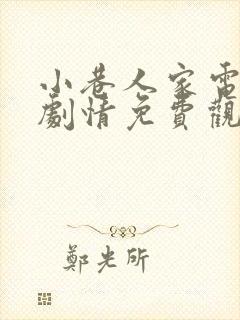 小巷人家電
劇情免費觀
鄭光所